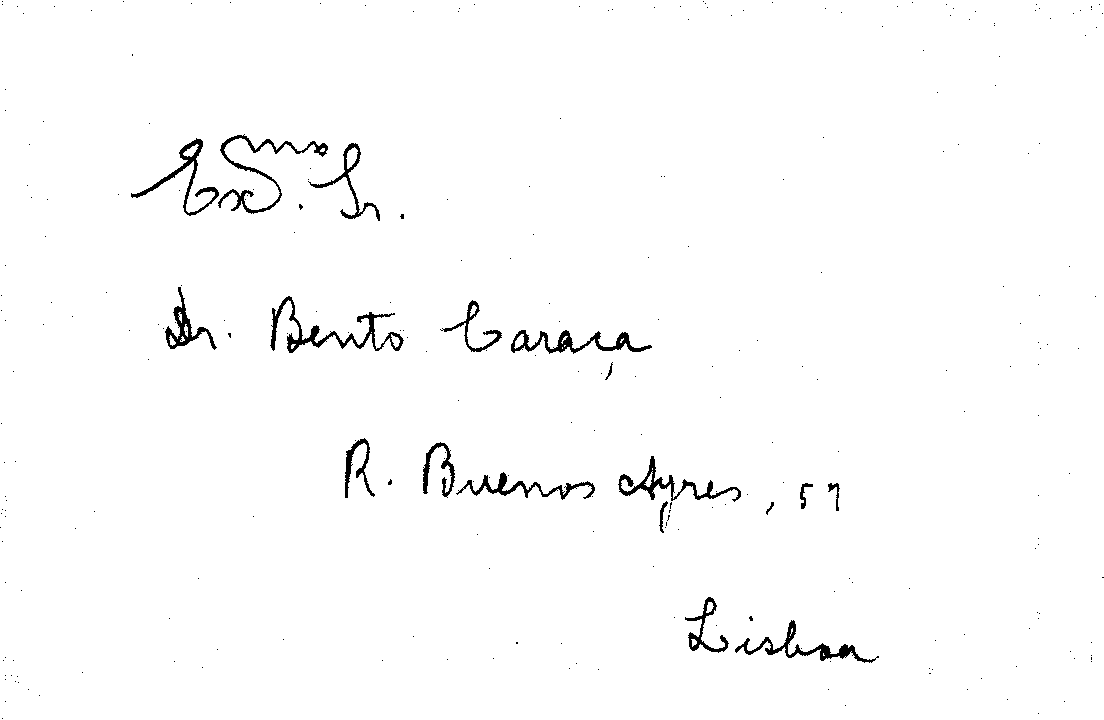 Exmo. Sr.
Dr. Bento Caraça
R. Buenos Ayres, 57
Lisboa